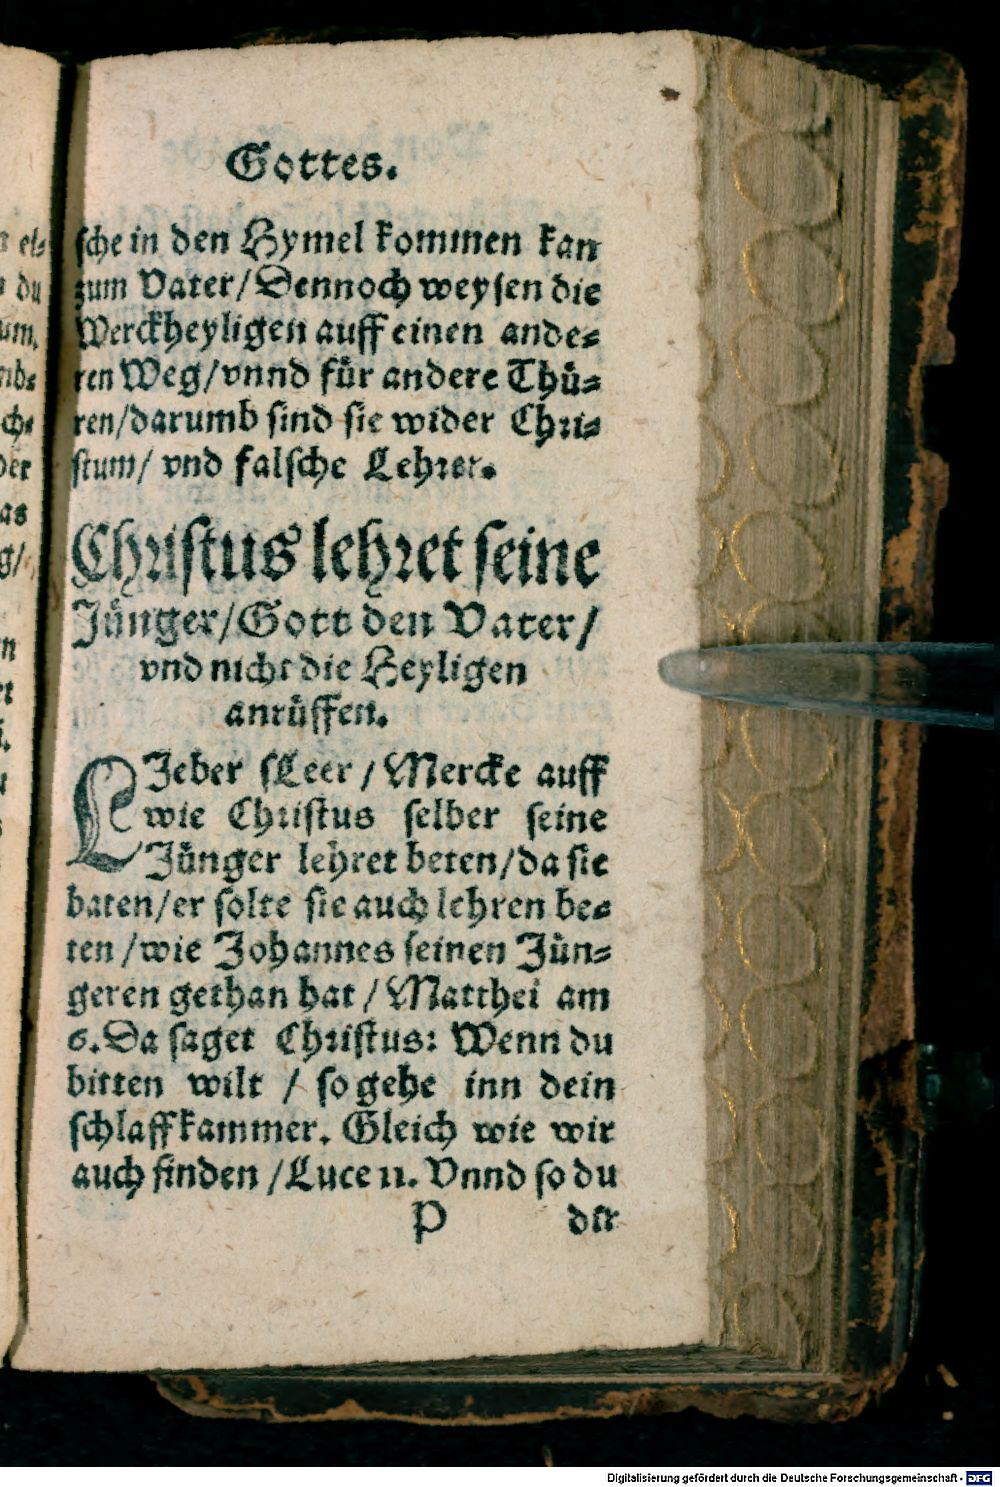 Gottes.
sche in den Hymel kommen kan
zum Vater/Dennoch weysen die
Werckheyligen auff einen ande⸗
ren Weg/vnnd fůr andere Thů⸗
ren/darumb sind sie wider Chri⸗
stum/ vnd falsche Lehrer.
Christus lehret seine
Jůnger/Gott den Vater/
vnd nicht die Heyligen
anrůffen.
LJeber sLeer/Mercke auff
wie Christus selber seine
Jůnger lehret beten/da sie
baten/er solte sie auch lehren be⸗
ten/wie Johannes seinen Jůn⸗
geren gethan hat/Matthei am
6.Da saget Christus: Wenn du
bitten wilt / so gehe inn dein
schlaffkammer. Gleich wie wir
auch finden/Luce 11. Vnnd so du
P der
Digitalisierung gefördert durch die Deutsche Forschungsgemeinschaft - DFG